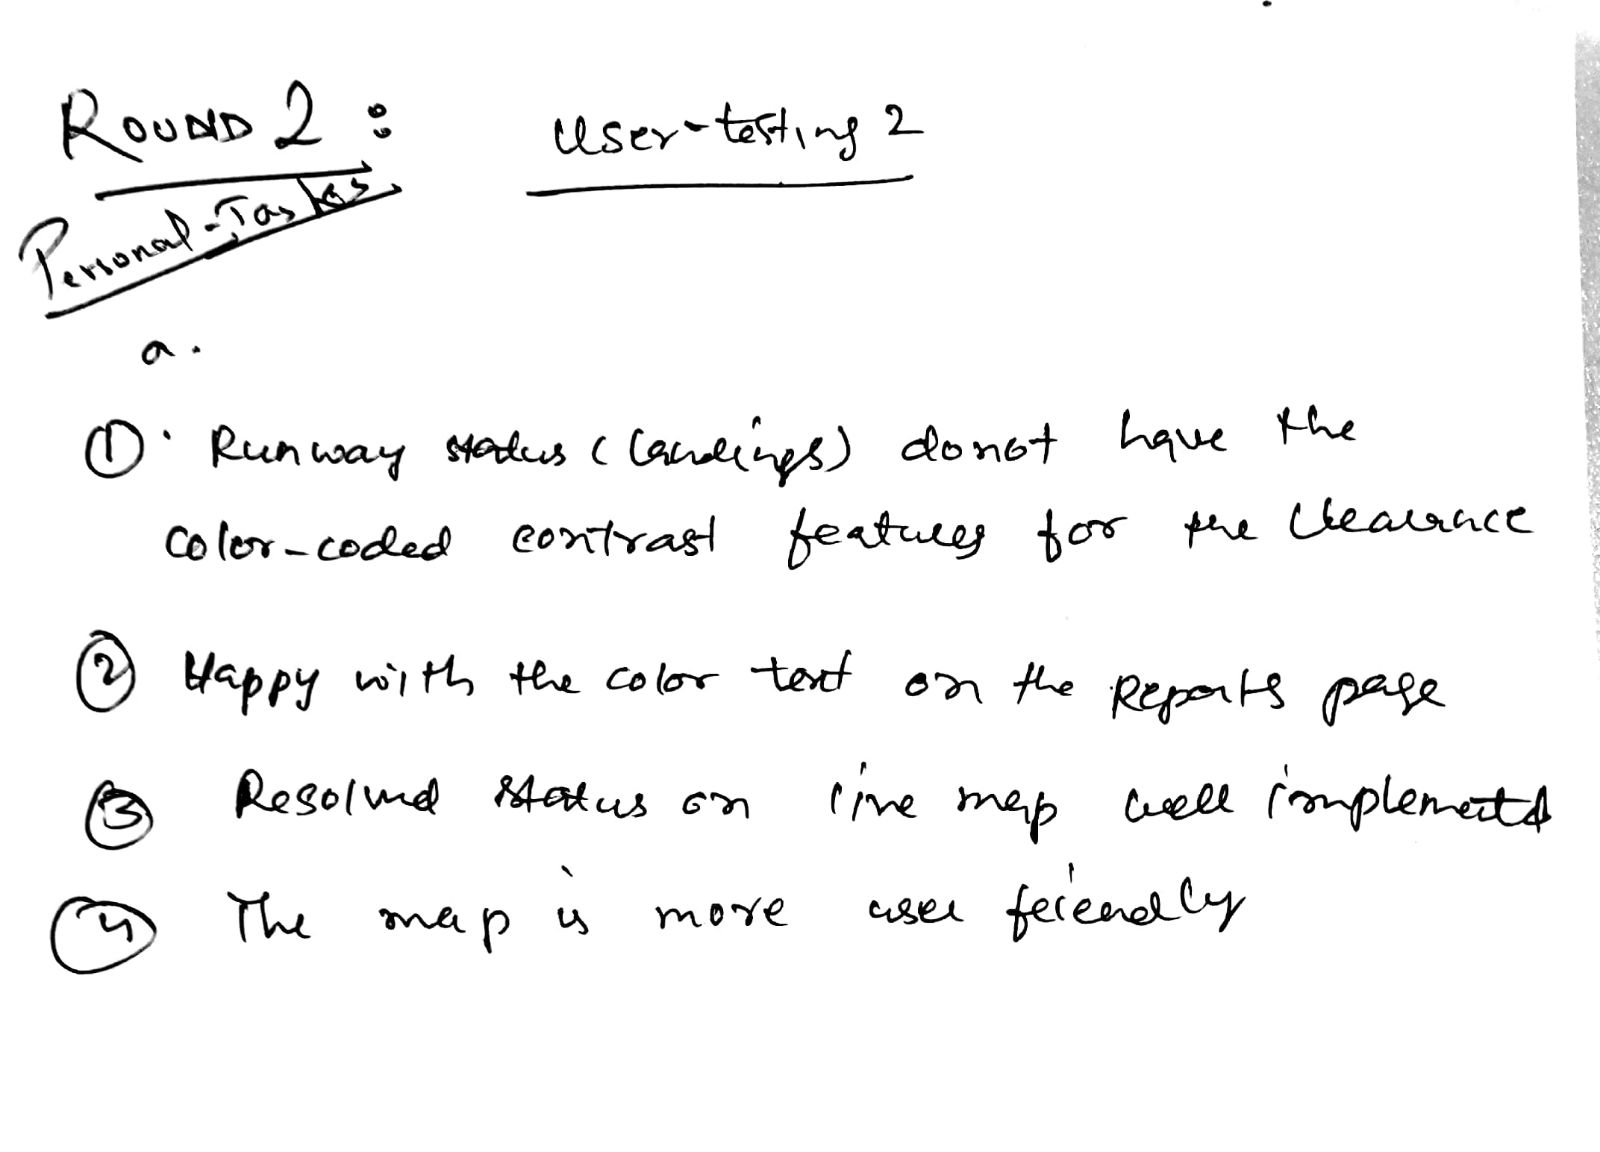 ROUND 2 : User-testing 2
Personal-Tasks
a.
① Runway status (landings) donot have the
color-coded contrast features for the clearance
② Happy with the color text on the Reports page
③ Resolved status on live map well implemented
④ The map is more user friendly